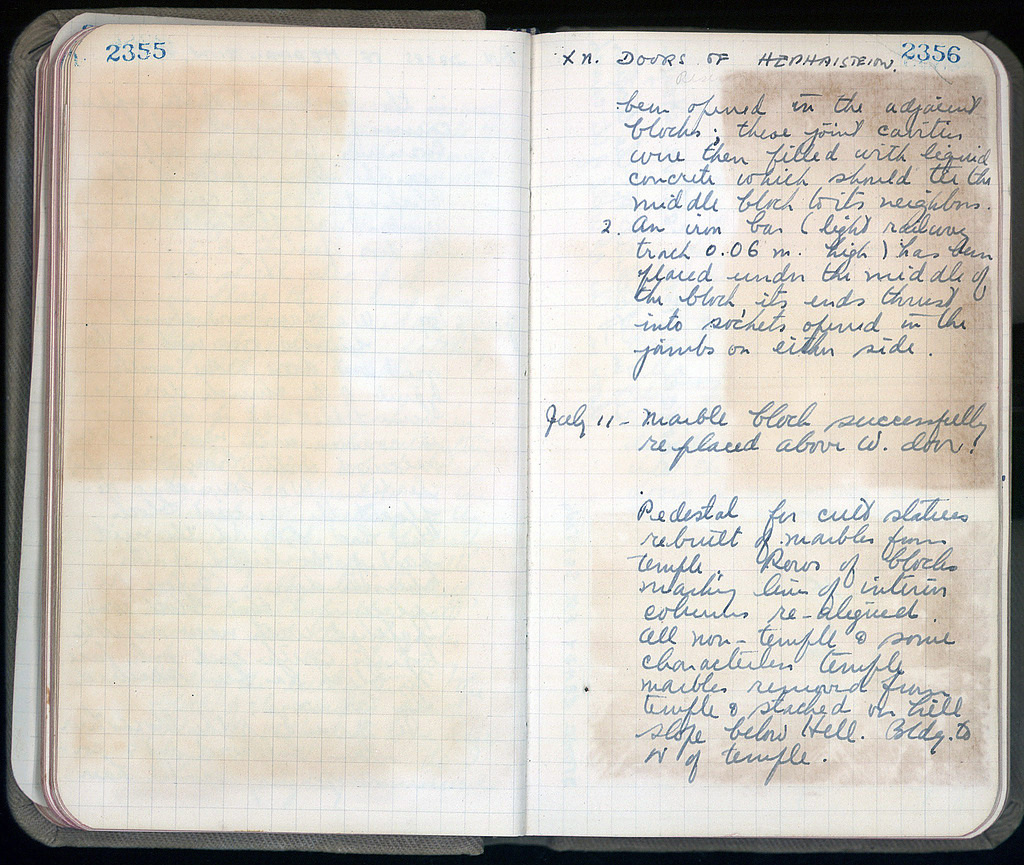 2355
2356
XN. DOORS OF HEPHAISTEION.
been opened in the adjacent
blocks; these joint cavities
were then filled with liquid
concrete which should tie the
middle block to its neighbors.
2. An iron bar (light railway
track 0.06 m. high) has been
placed under the middle of
the block its ends thrust
into sockets opened in the
jambs on either side.
July 11 - Marble block successfully
replaced above W. door.
Pedestal for cult statues
rebuilt of marbles from
temple. Rows of blocks
marking line of interior
columns re-aligned.
All non-temple & some
characterless temple
marbles removed from
temple & stacked on hill
slope below Hell. Bldg. to
W of temple.